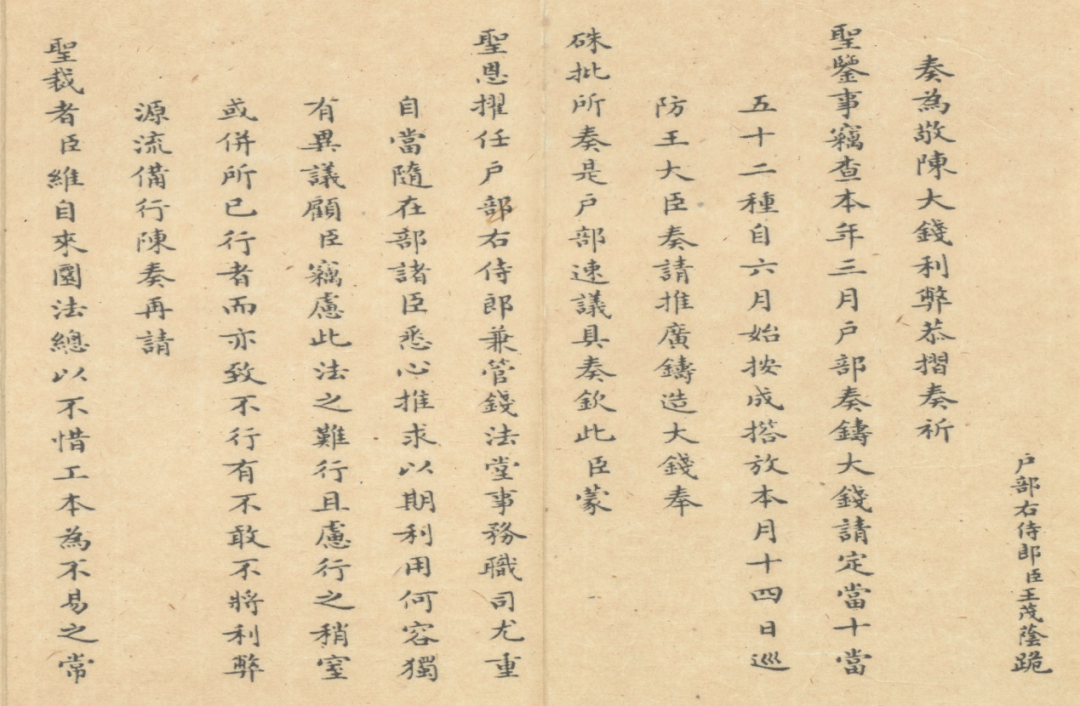 户部右侍郎臣王茂蔭跪
奏為敬陳大錢利弊恭摺奏祈
聖鑒事竊查本年三月户部奏鑄大錢請定當十當
五十二種自六月始按成搭放本月十四日巡
防王大臣奏請推廣鑄造大錢奉
硃批所奏是户部速議具奏欽此臣蒙
聖恩擢任户部右侍郎兼管錢法堂事務職司尤重
自當隨在部諸臣悉心推求以期利用何容獨
有異議顧臣竊慮此法之難行且慮行之稍窒
或併所已行者而亦致不行有不敢不將利弊
源流備行陳奏再請
聖裁者臣維自來圜法總以不惜工本為不易之常